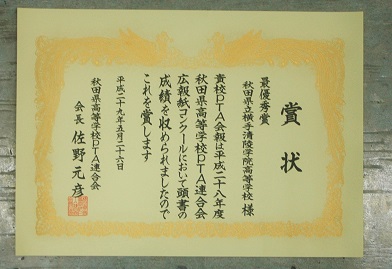 賞状
最優秀賞
秋田県立横手清陵学院高等学校 様
貴校PTA会報は平成二十八年度
秋田県高等学校PTA連合会
広報紙コンクールにおいて頭書の
成績を収められましたので
これを賞します
平成二十九年五月二十六日
秋田県高等学校PTA連合会
会長 佐野元彦